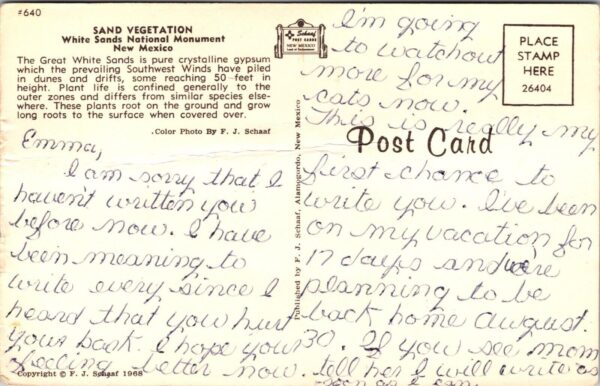 #640
SAND VEGETATION
White Sands National Monument
New Mexico
The Great White Sands is pure crystalline gypsum
which the prevailing Southwest Winds have piled
in dunes and drifts, some reaching 50-feet in
height. Plant life is confined generally to the
outer zones and differs from similar species else-
where. These plants root on the ground and grow
long roots to the surface when covered over.
Color Photo By F. J. Schaaf
Emma,
I am sorry that I
haven't written you
before now. I have
been meaning to
write every since I
heard that you hurt
your back. I hope your
feeling better now.
Copyright © F. J. Schaaf 1968
Published by F. J. Schaaf, Alamogordo, New Mexico
Schaaf
POST CARDS
Land of Enchantment
PLACE
STAMP
HERE
26404
Post Card
I'm going
to watchout
more for my
cats now.
This is really my
first chance to
write you. I've been
on my vacation for
17 days and we're
planning to be
back home August.
30. If you see mom
tell her I will write as
soon as I can